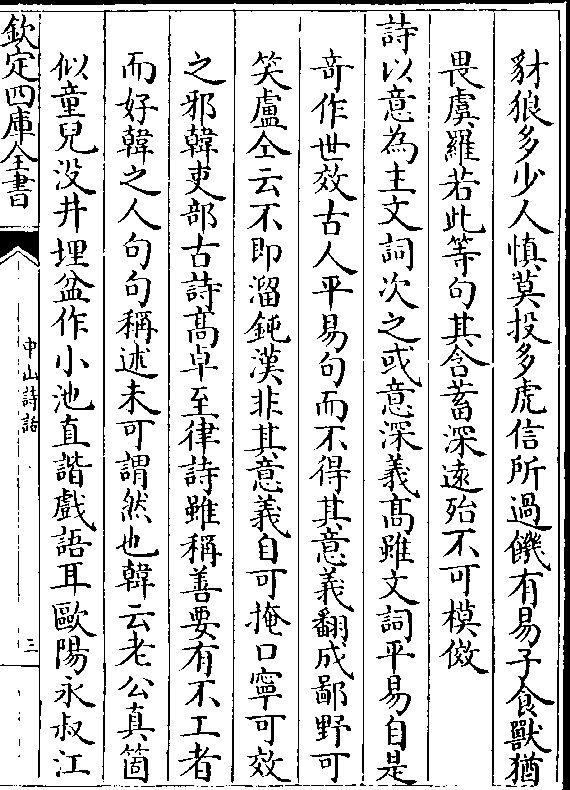 豺狼多少人慎莫投多虎信所過饑有易子食獸猶
畏虞羅若此等句其含蓄深逺殆不可模傚
詩以意為主文詞次之或意深義髙雖文詞平易自是
竒作世效古人平易句而不得其意義翻成鄙野可
笑盧仝云不即溜鈍漢非其意義自可掩口寧可效
之邪韓吏部古詩髙卓至律詩雖稱善要有不工者
而好韓之人句句稱述未可謂然也韓云老公真箇
似童兒没井埋盆作小池直諧戲語耳歐陽永叔江
欽定四庫全書
中山詩話
三